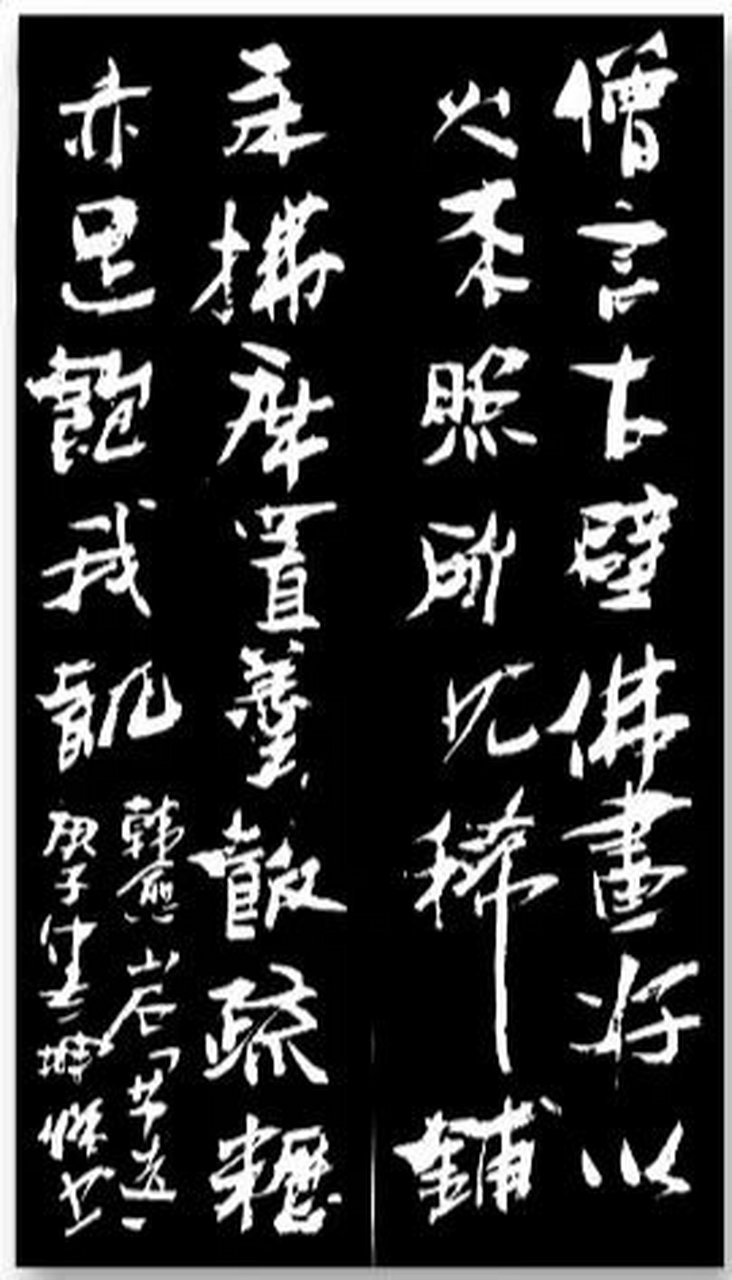 僧言古壁佛畫好以
火来照所見稀鋪
床拂席置羹飯疏糲
亦足飽我飢
韓愈山石
庚子仲